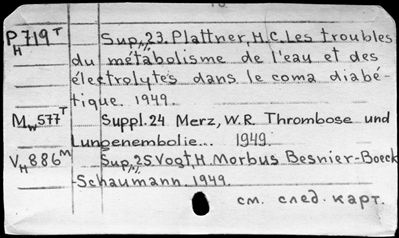 P_H 719^T Sup. 23. Plattner, H.C. Les troubles
du métabolisme de l'eau et des
électrolytes dans le coma diabé-
tique. 1949.
M_W 577^T Suppl. 24 Merz, W.R. Thrombose und
Lungenembolie... 1949.
V_H 886^M Sup. 25 Vogt, H. Morbus Besnier-Boeck
-Schaumann. 1949.
см. след. карт.